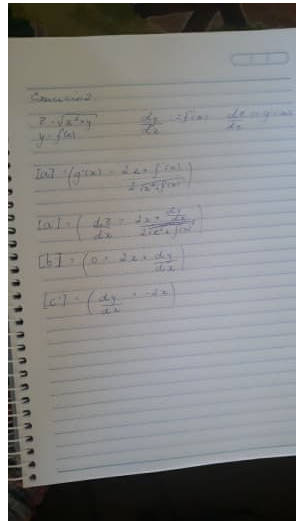 z = √x²+y    dy/dx = f'(x)    dz/dx = g'(x)
y = f(x)
[a] = (g'(x) = 2x + f'(x) / 2√x²+f(x))
[a'] = (dz/dx = 2x + dy/dx / 2√x²+f(x))
[b'] = (0 = 2x + dy/dx)
[c'] = (dy/dx = -2x)